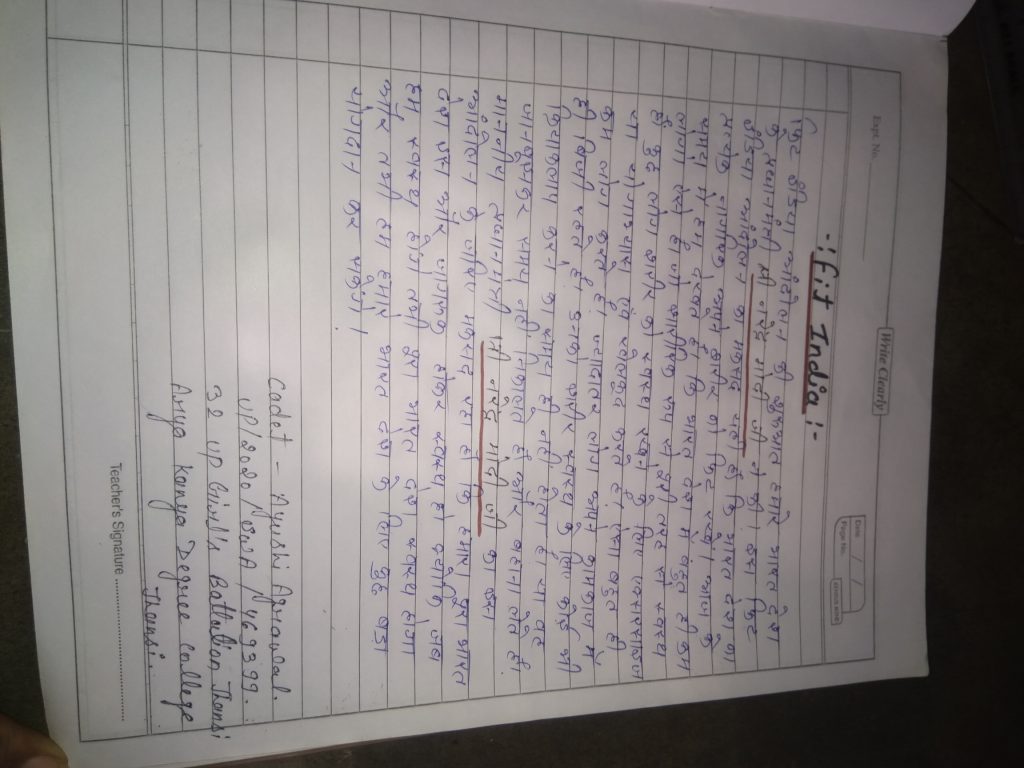 Write Clearly
Date / /
Page No.
Expt. No.
-: fit India :-
फिट इंडिया आंदोलन की शुरुआत हमारे भारत देश
के प्रधान-मंत्री श्री नरेंद्र मोदी जी ने की। इस फिट
इंडिया आंदोलन का मकसद यही है कि भारत देश का
प्रत्येक नागरिक अपने शरीर को फिट रखे। आज के
समय में हम देखते हैं कि भारत देश में बहुत ही कम
लोग ऐसे हैं जो शारीरिक रूप से पूरी तरह से स्वस्थ
हैं कुछ लोग शरीर को स्वस्थ रखने के लिए एक्सरसाइज
या योगाभ्यास एवं खेलकूद करते हैं। ऐसा बहुत ही
कम लोग करते हैं। ज्यादातर लोग अपने कामकाज में
ही बिजी रहते हैं। उनको शरीर स्वस्थ के लिए कोई भी
क्रियाकलाप करने का समय ही नहीं होता है या वह
जान-बूझकर समय नहीं निकालते हैं और बहाना लेते हैं।
माननीय प्रधान-मंत्री श्री नरेंद्र मोदी जी का इस
आंदोलन के जरिए मकसद यही है कि हमारा पूरा भारत
देश इस ओर जागरूक होकर स्वस्थ हो क्योंकि जब
हम स्वस्थ होंगे तभी पूरा भारत देश स्वस्थ होगा
और तभी हम हमारे भारत देश के लिए कुछ बड़ा
योगदान कर सकेंगे।
Cadet - Ayushi Agrawal.
UP/2020/ /469399.
32 UP Girl's Battalion Jhansi
Arya Kanya Degree College
Jhansi.
Teacher's Signature